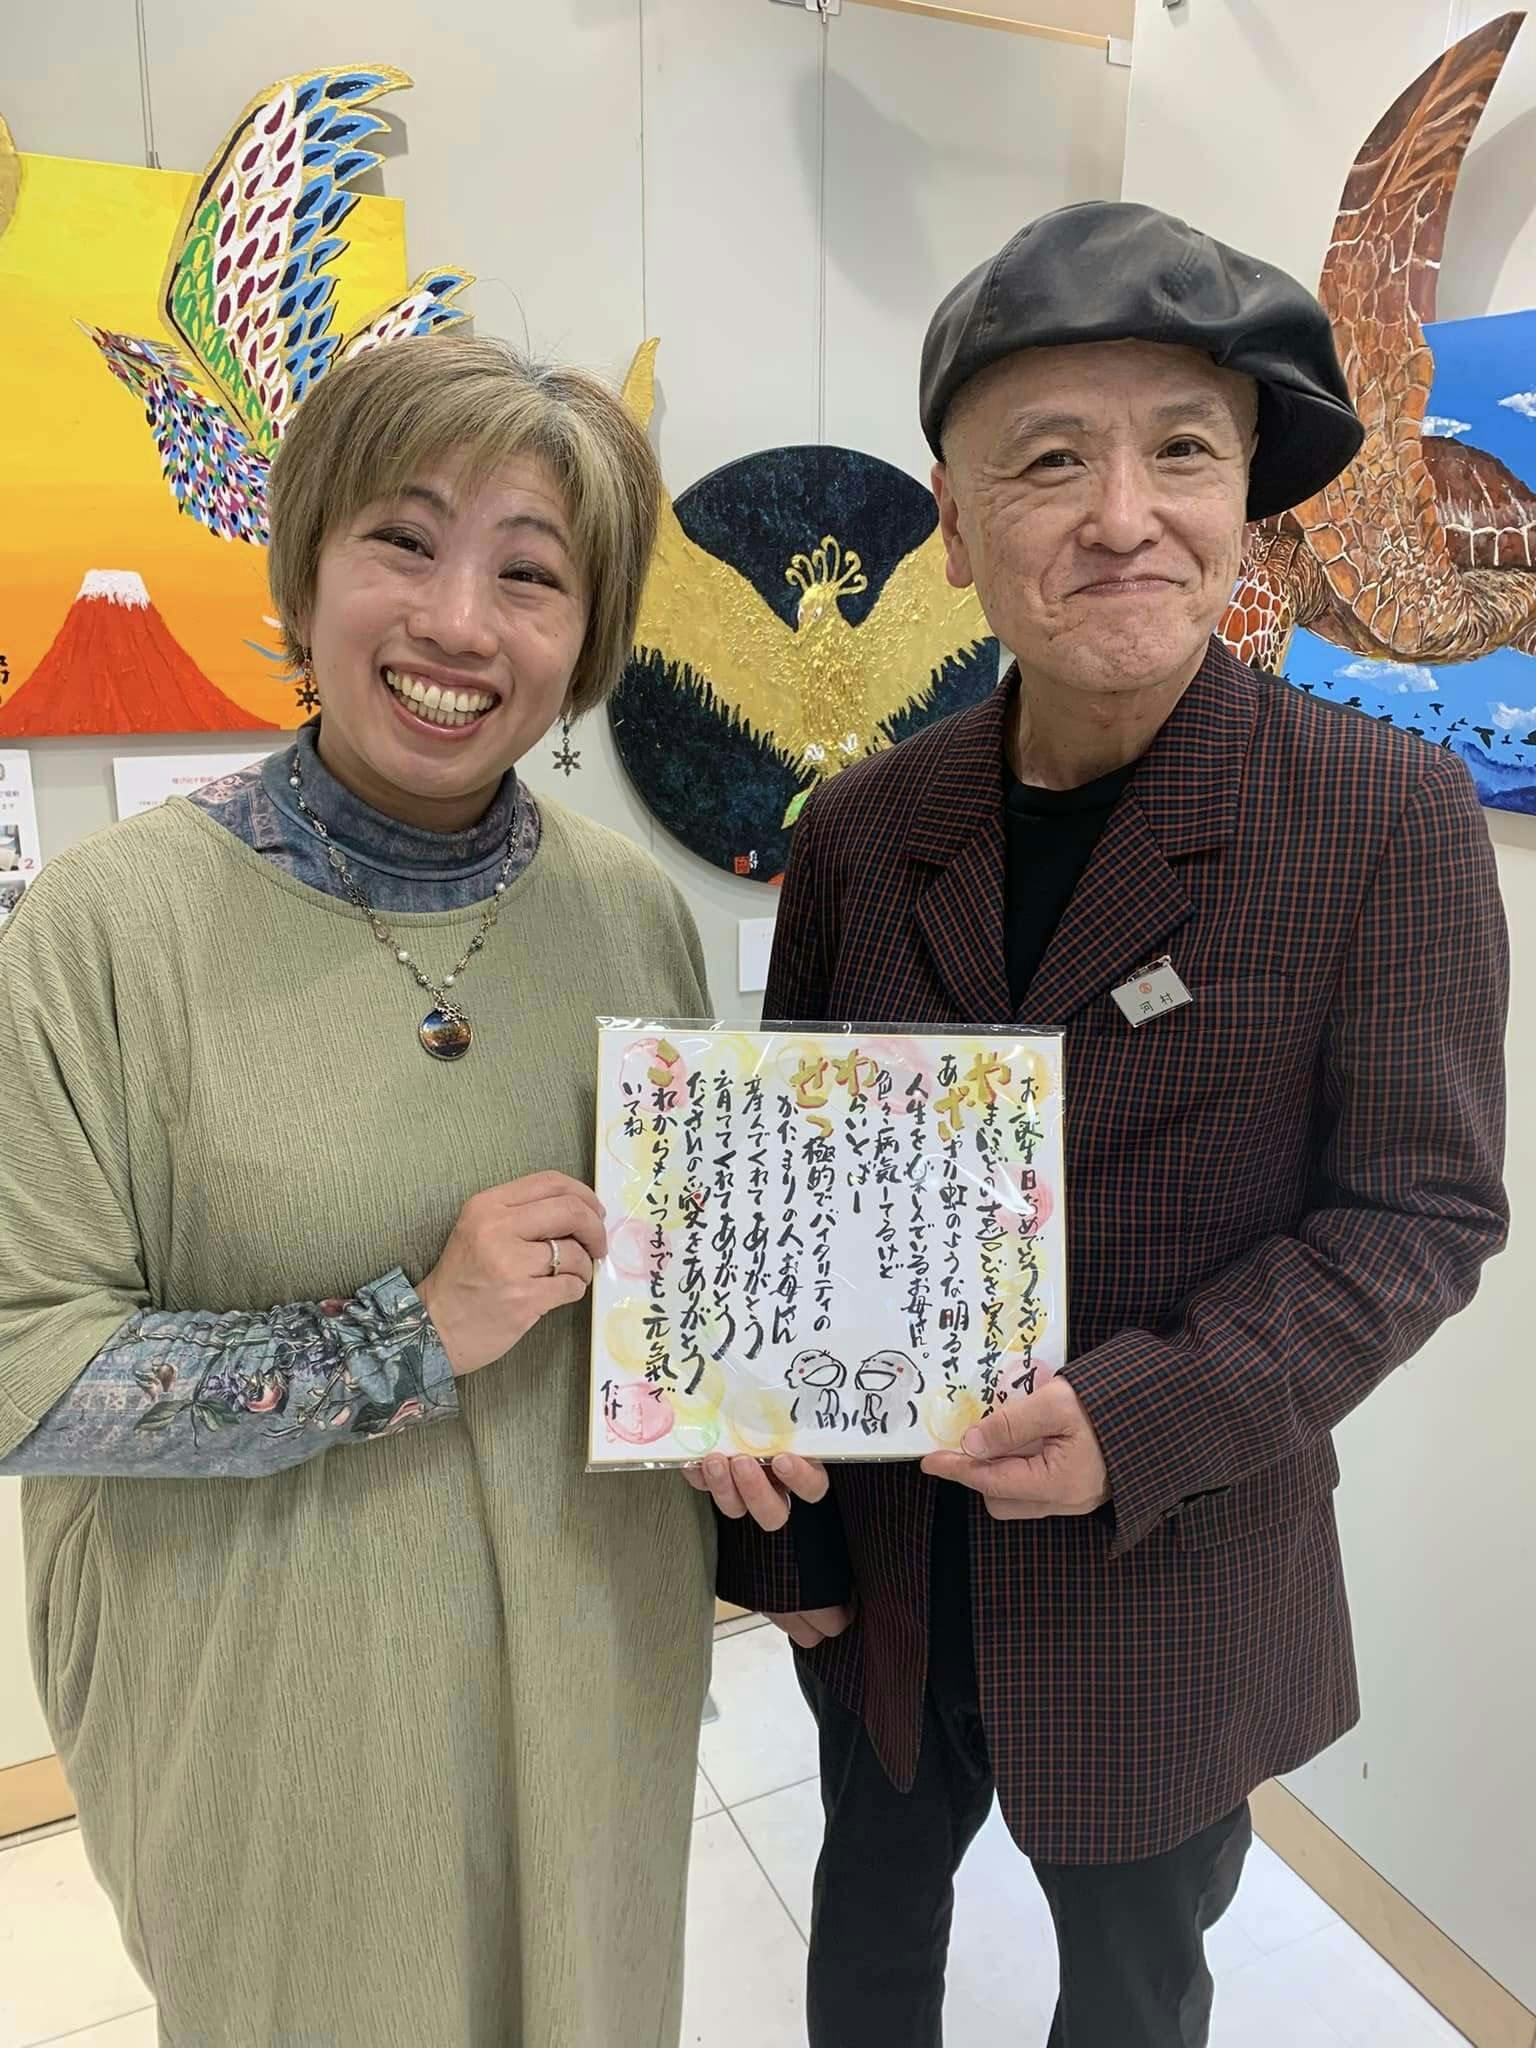 お誕生日おめでとうございます
やまほどの喜びを実らせながら
あざやか虹のような明るさで
人生を楽しんでいるお母さん。
色々病気してるけど
わらいとばし
せっ極的でバイタリティの
かたまりの人、お母さん
産んでくれてありがとう
育ててくれてありがとう
たくさんの愛をありがとう
これからもいつまでも元氣で
いてね
たけ
河村
2